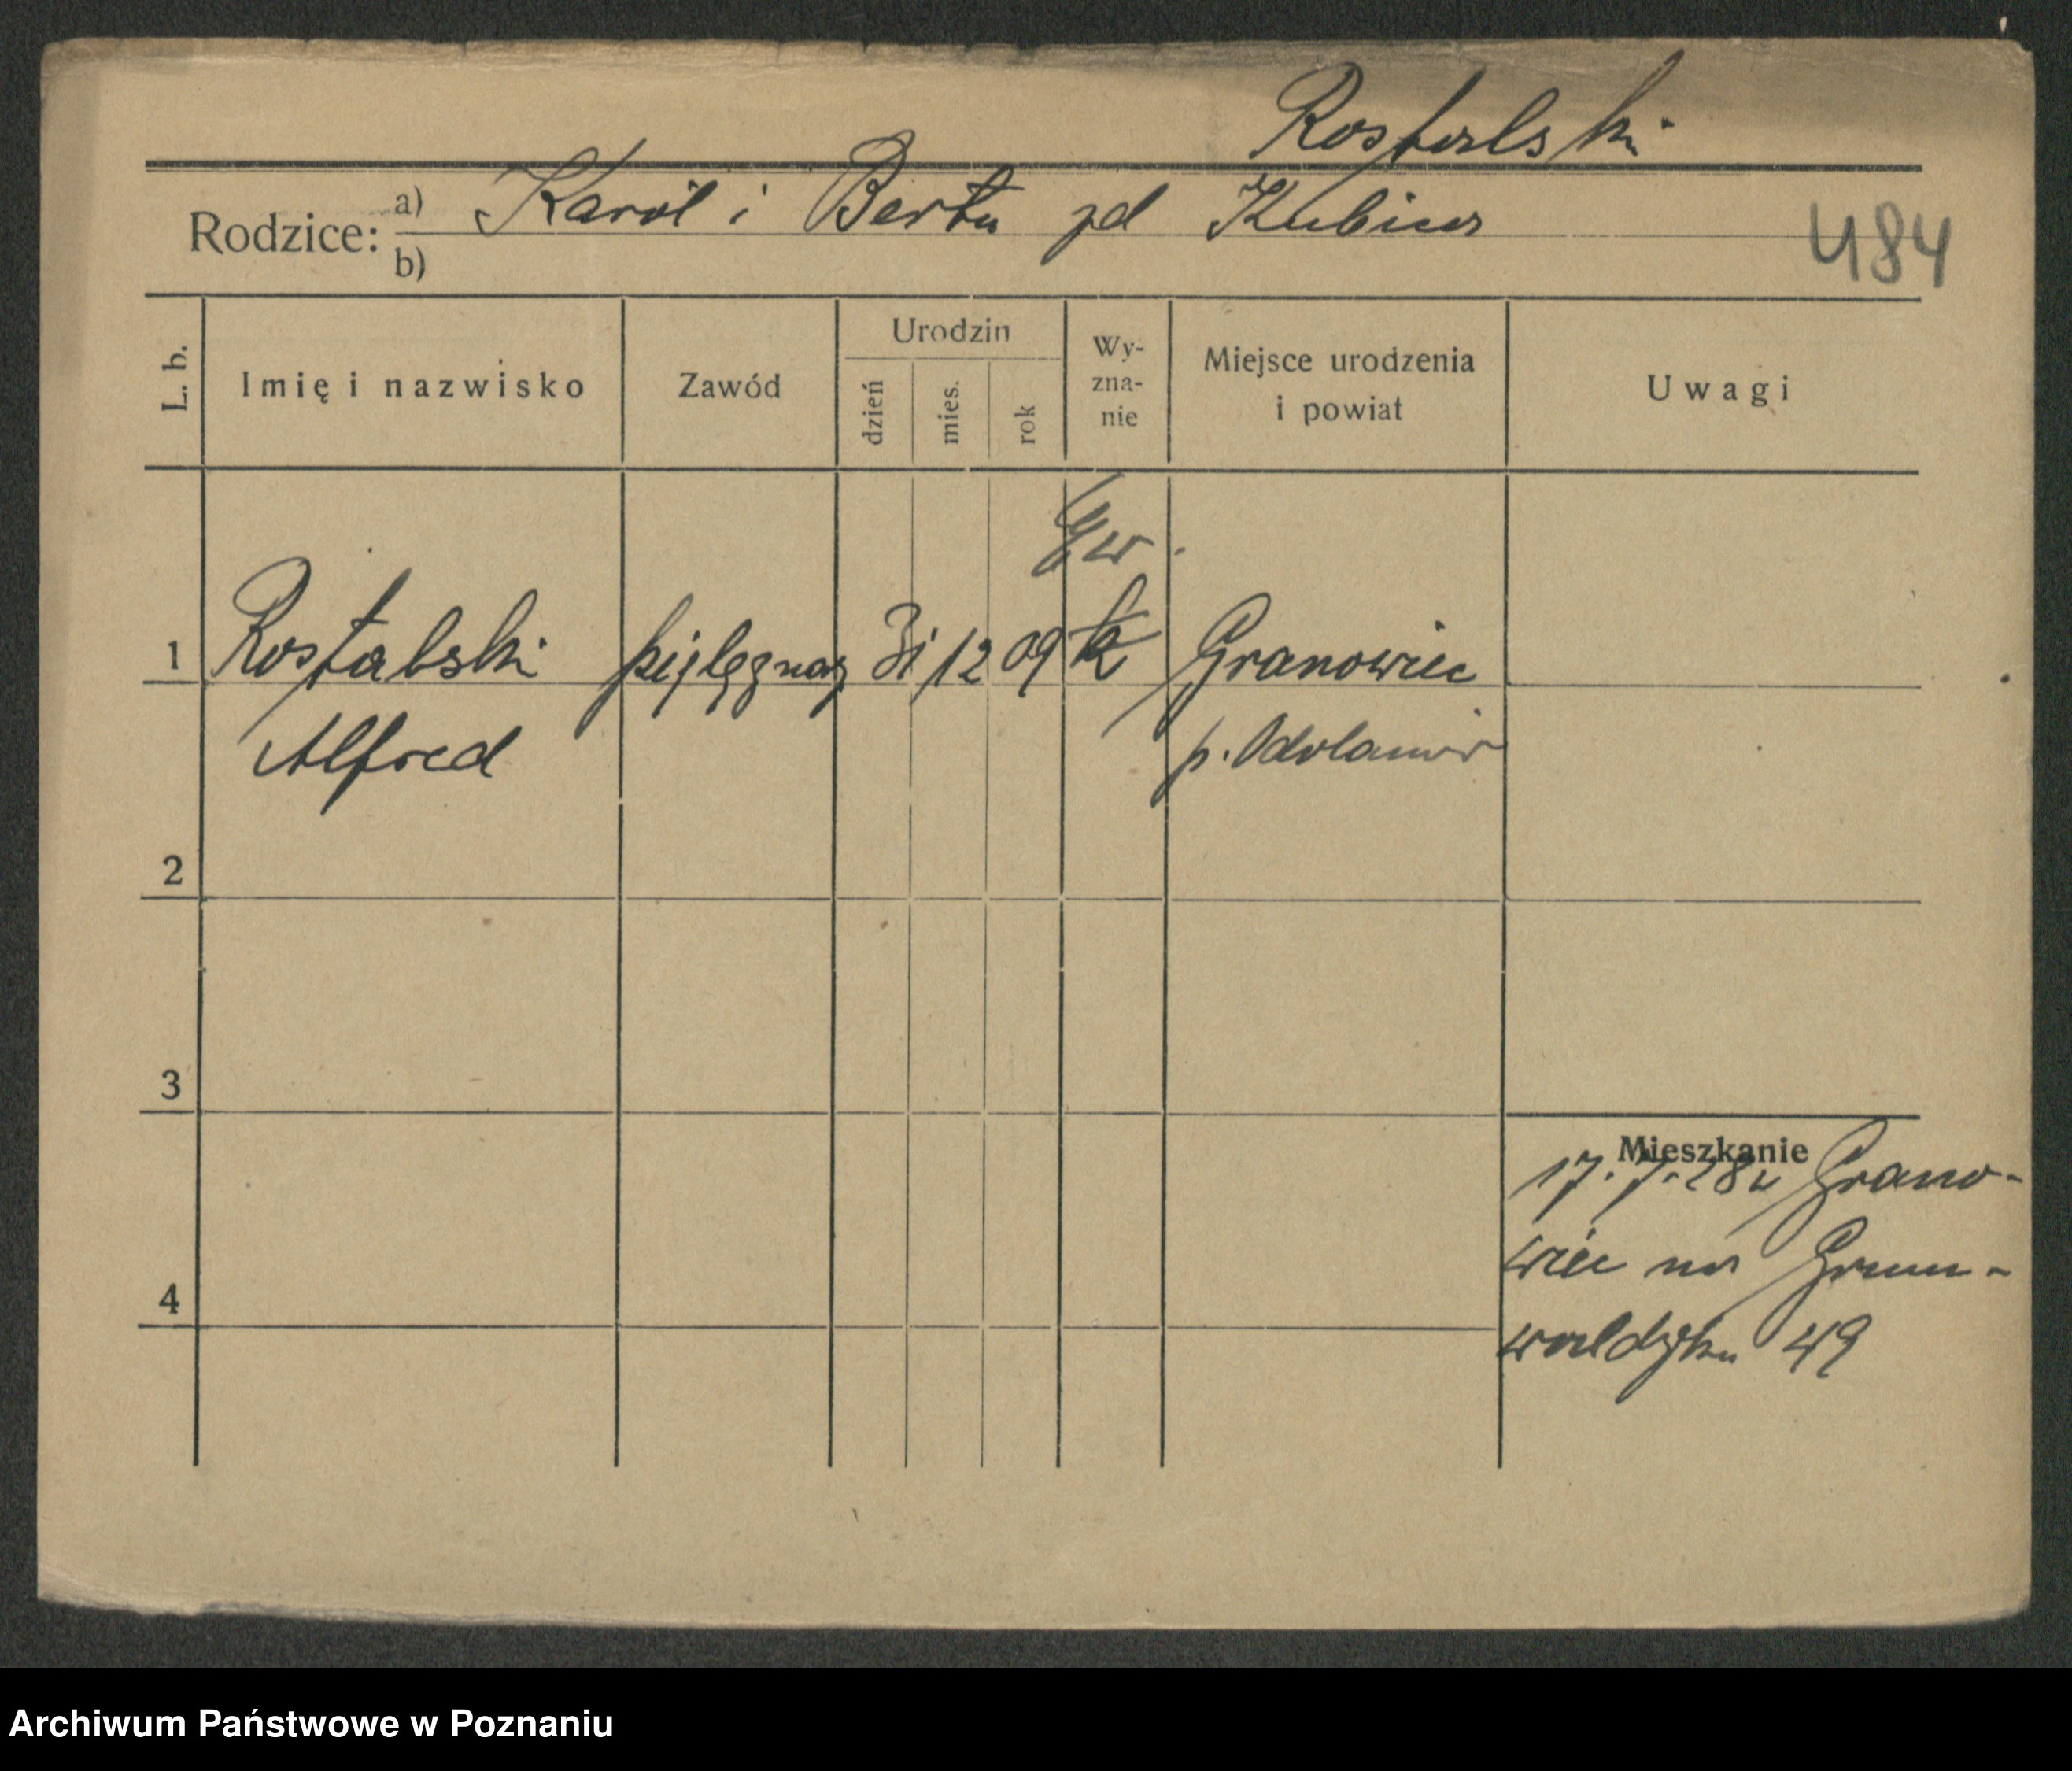 Rostalski
Rodzice: a) Karol i Berta zd Kubica
b)
484
L. b.
Imię i nazwisko
Zawód
Urodzin
dzień
mies.
rok
Wy-
zna-
nie
Miejsce urodzenia
i powiat
Uwagi
Ew.
1 Rostalski 31 12 09 k Granowiec
Alfred p. Odolanów
2
3
4
Mieszkanie
17.7.28 z Grano-
wiec na Grun-
waldzką 49
Archiwum Państwowe w Poznaniu